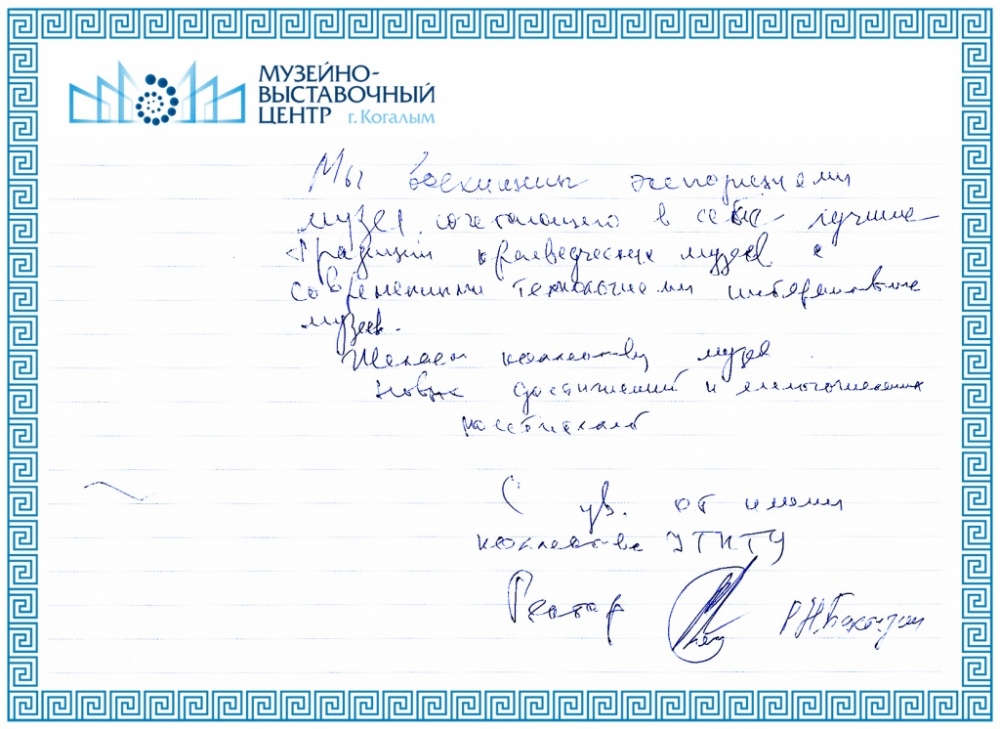 МУЗЕЙНО-
ВЫСТАВОЧНЫЙ
ЦЕНТР г. Когалым
Мы восхищены экспозициями
музея, сочетающего в себе лучшие
традиции краеведческих музеев с
современными технологиями интерактивных
музеев.
Желаем коллективу музея
новых достижений и
С ув. от имени
коллектива УГНТУ
Ректор Р.Н. Бахтизин